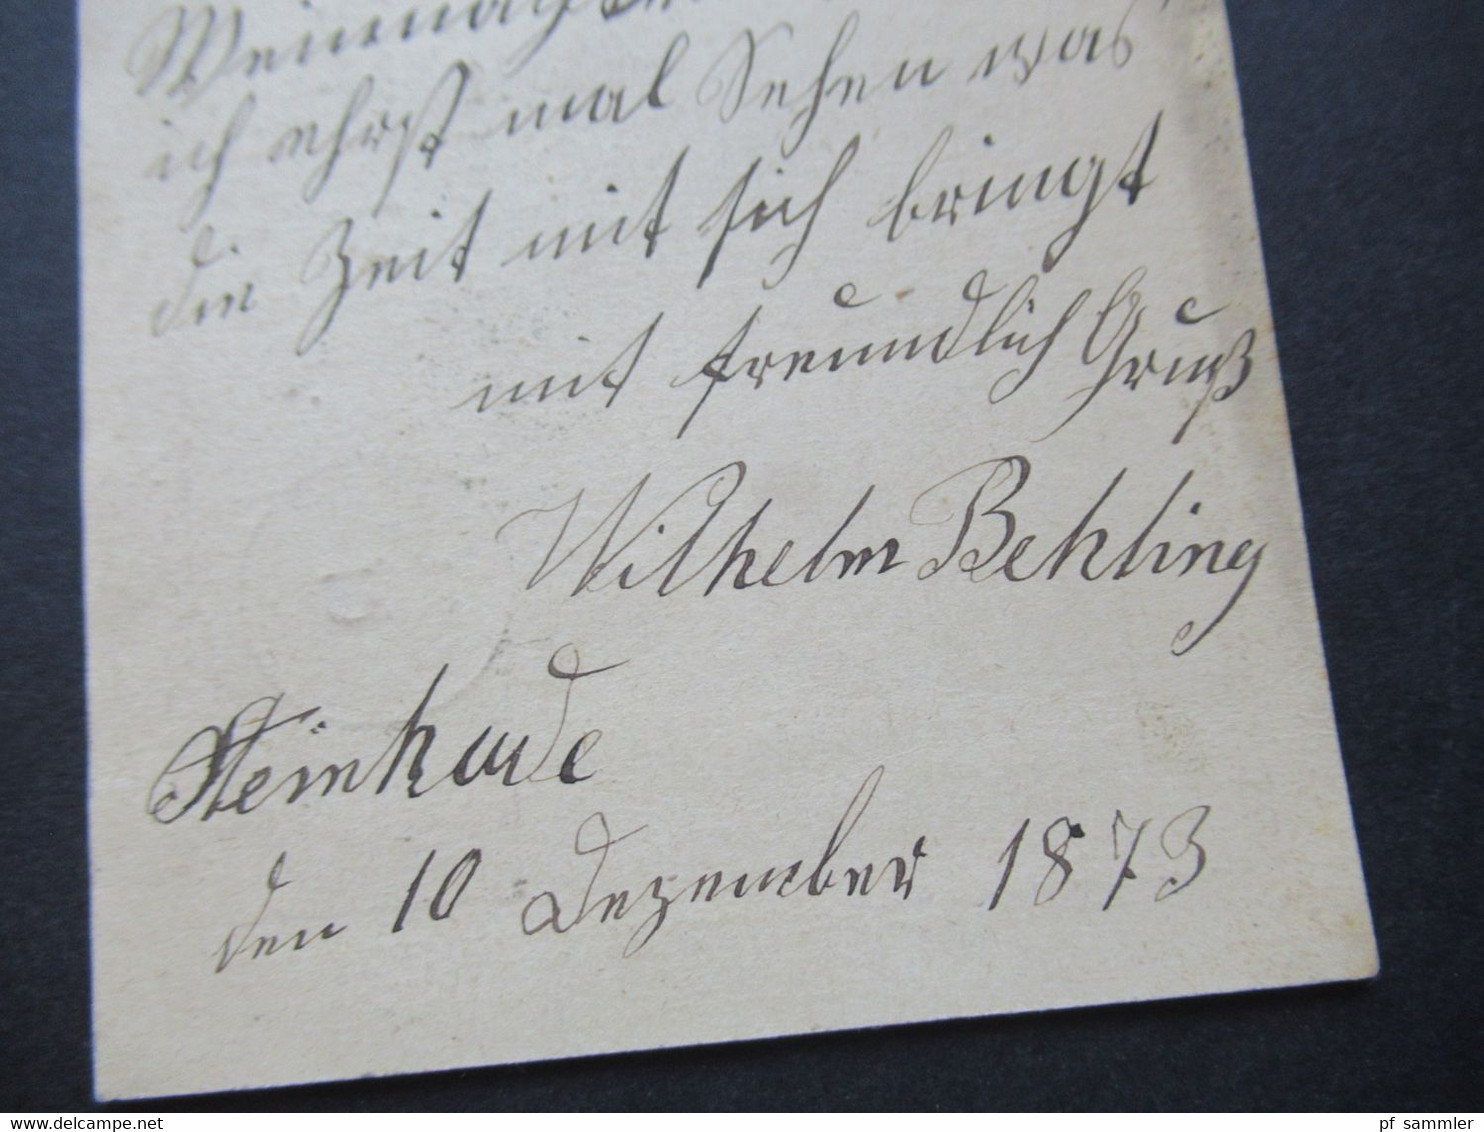 Weinnachten
ich ehrst mal Sehen was
die Zeit mit sich bringt
mit freundlich Gruß
Wilhelm Behling
Steinhude
den 10 Dezember 1873
www.delcampe.net
pf_sammler